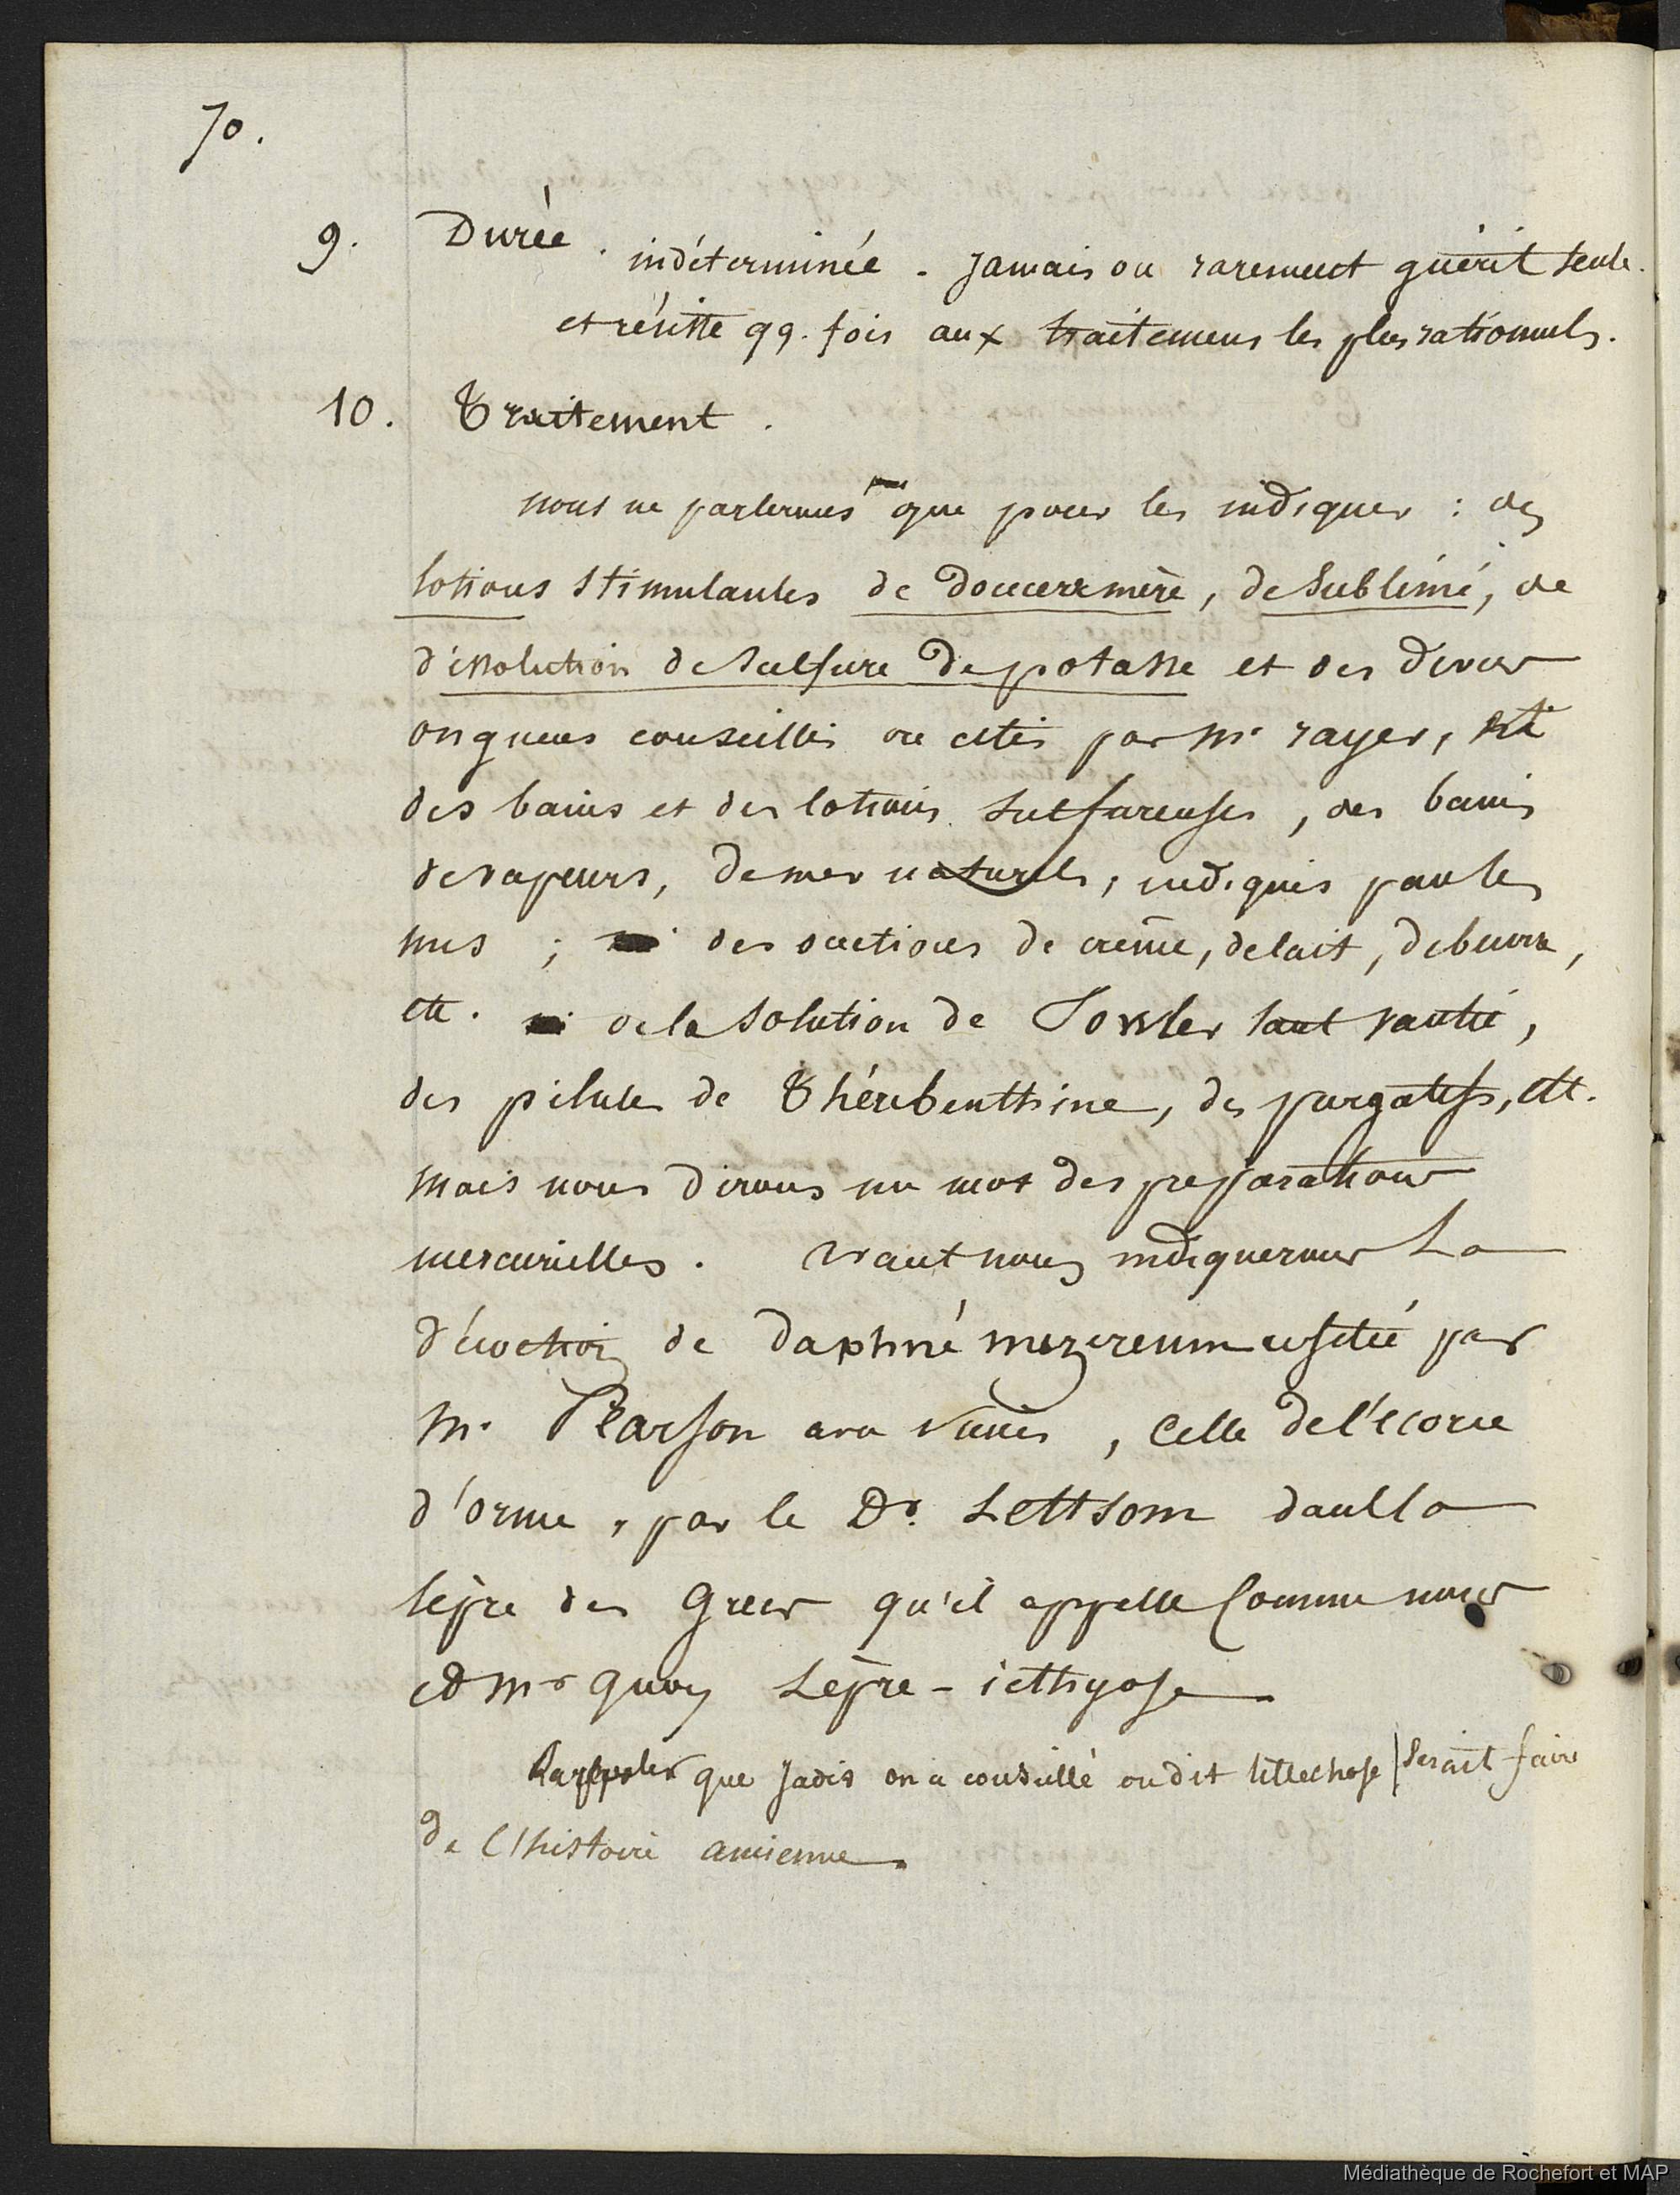 70.
9. Durée. indéterminée. jamais ou rarement guérit seule.
et résiste qq. fois aux traitemens les plus rationnels.
10. Traitement.
nous ne parlerons que pour les indiquer : des
lotions stimulantes de douceramère, de sublimé, de
dissolution de sulfure de potasse et des divers
onguens conseillés ou cités par Mr rayer,
des bains et des lotions sulfureuses, des bains
de vapeurs, de mer naturels, indiqués par les
uns ; des onctions de crême, de lait, de beurre,
etc. de la solution de Fowler tant vantée,
des pilules de Thérébenthine, des purgatifs, etc.
mais nous dirons un mot des preparations
mercurielles. avant nous indiquerons La
décoction de daphné mezereum usitée par
Mr Pearson avec succès, celle de l'écorce
d'orme, par le Dr. Lettsom dans la
lèpre des Grecs qu'il appelle comme nous
et Mr Quoy Lèpre-icthyose
Rappeler que jadis on a conseillé ou dit telle chose serait faire
de l'histoire ancienne.
Médiathèque de Rochefort et MAP